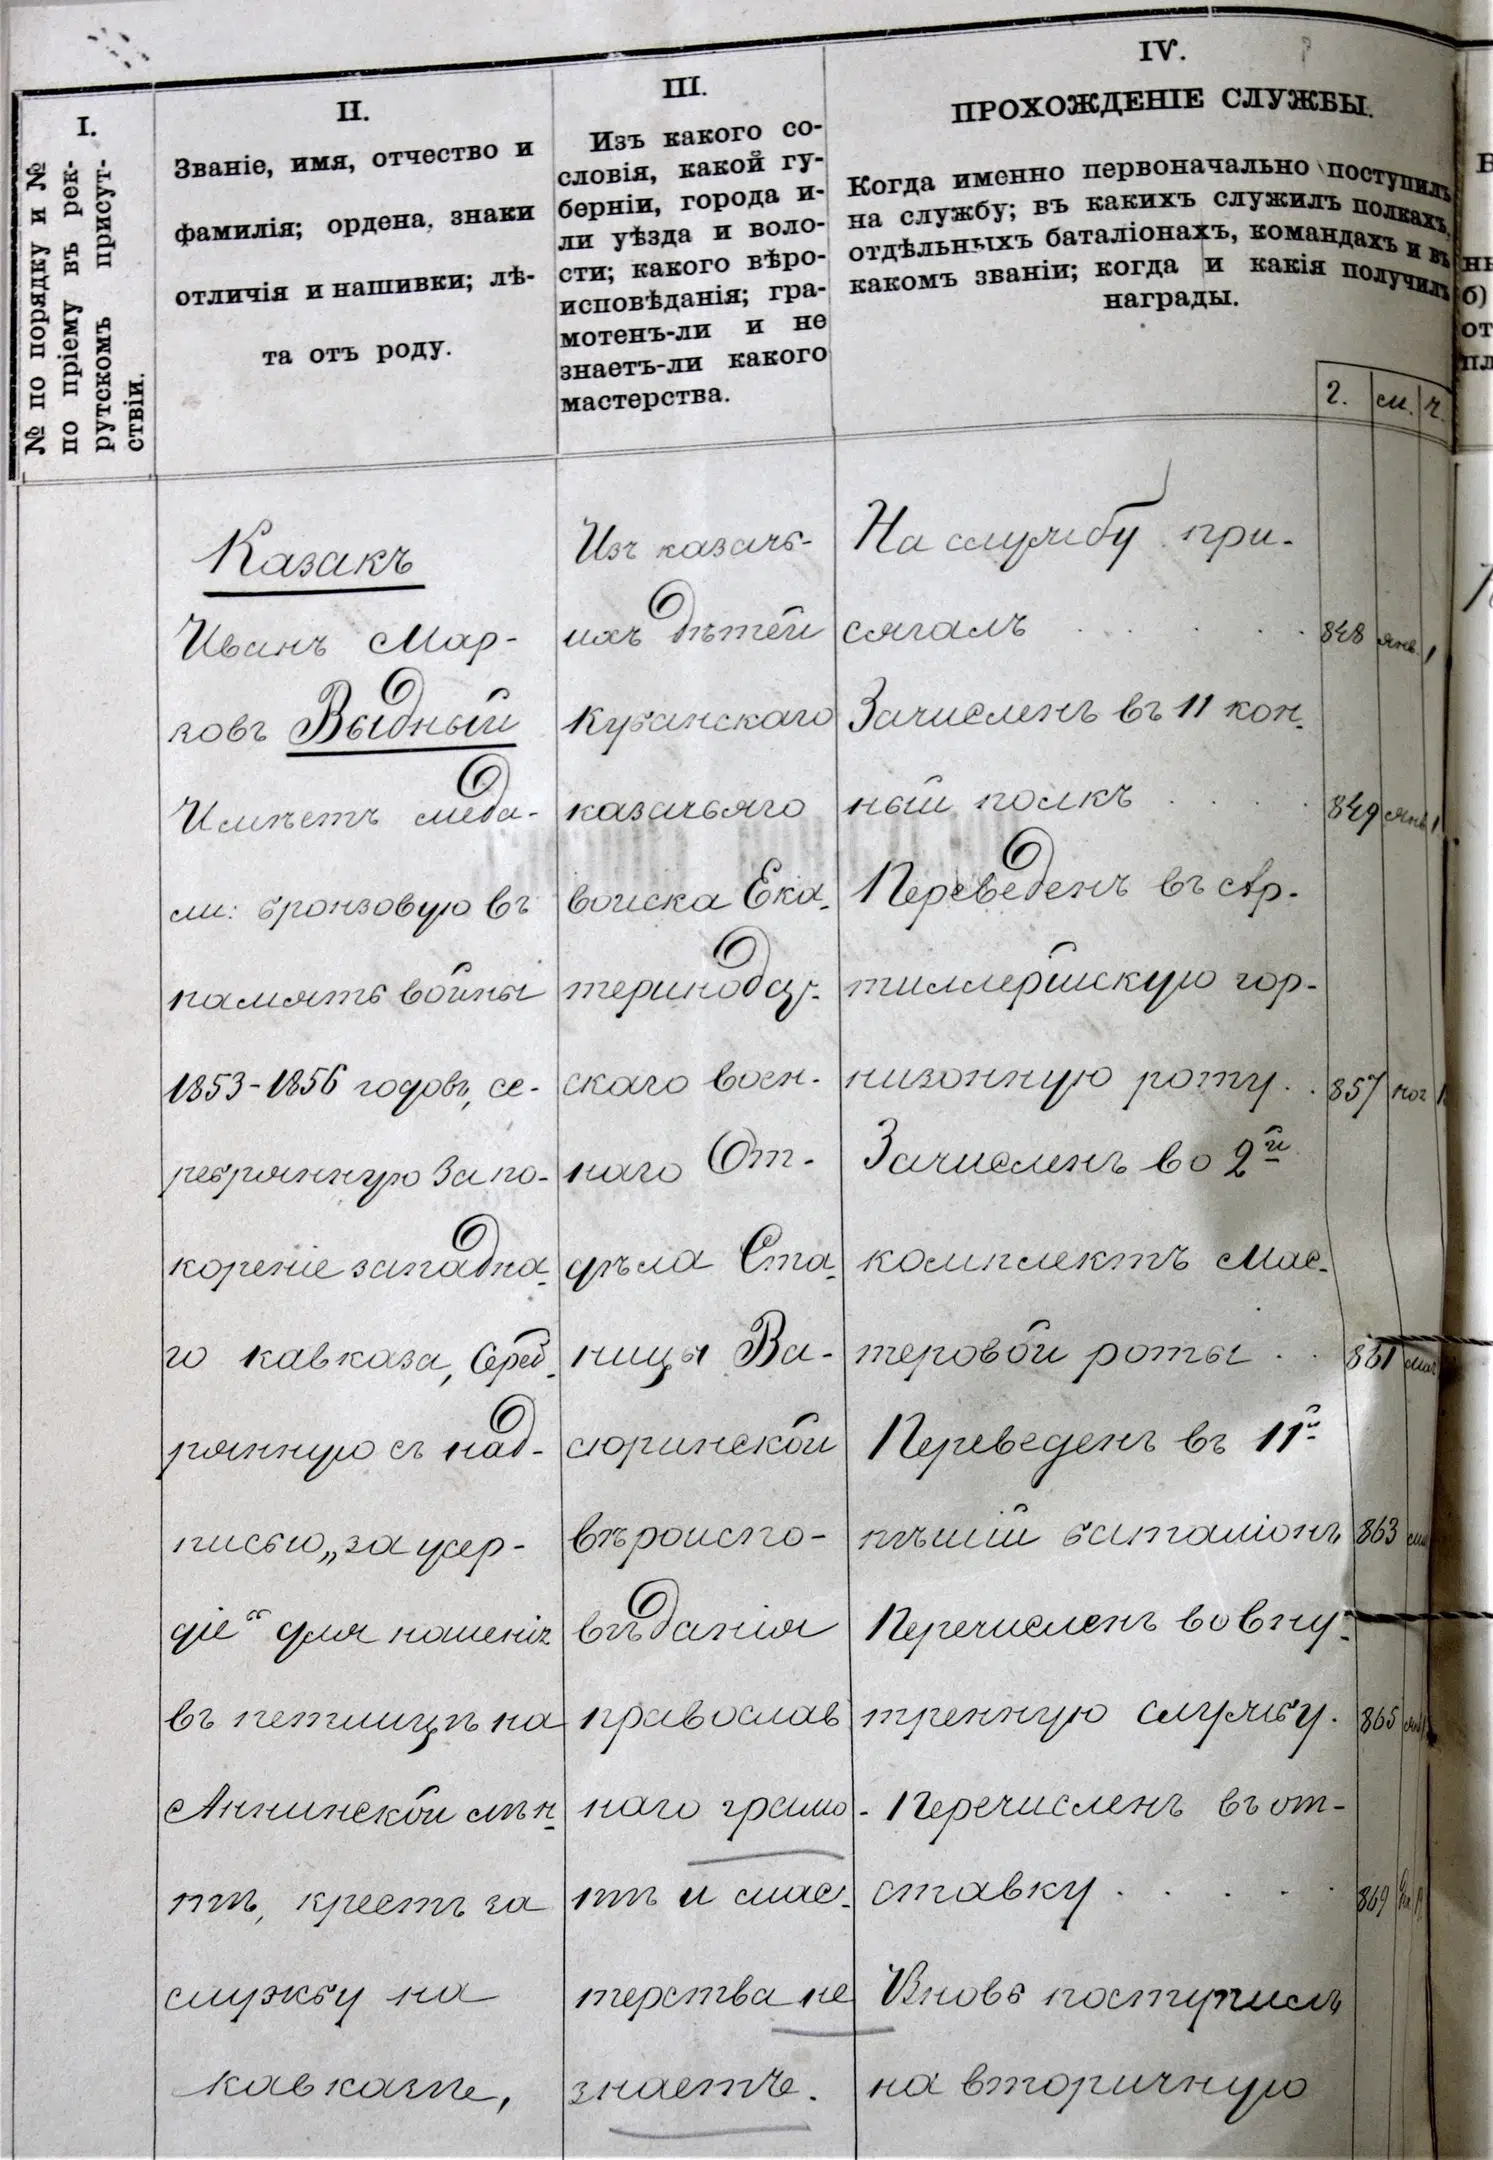 I.
№ по порядку и №
по пріему въ рек-
рутскомъ присут-
ствіи.
II.
Званіе, имя, отчество и
фамилія; ордена, знаки
отличія и нашивки; лѣ-
та отъ роду.
III.
Изъ какого со-
словія, какой гу-
берніи, города и-
ли уѣзда и воло-
сти; какого вѣро-
исповѣданія; гра-
мотенъ-ли и не
знаетъ-ли какого
мастерства.
IV.
ПРОХОЖДЕНІЕ СЛУЖБЫ.
Когда именно первоначально поступилъ
на службу; въ какихъ служилъ полкахъ,
отдѣльныхъ баталіонахъ, командахъ и въ
какомъ званіи; когда и какія получилъ
награды.
г. м. ч.
Казакъ
Иванъ Мар-
ковъ Выдный
Имѣетъ меда-
ли: бронзовую въ
память войны
1853-1856 годовъ, се-
ребрянную за по-
кореніе западна-
го кавказа, Сереб-
рянную съ над-
писью „за усер-
діе“ для ношенія
въ петлицѣ на
Аннинской лѣн-
тѣ, крестъ за
службу на
кавказѣ,
Изъ казачь-
ихъ дѣтей
Кубанскаго
казачьяго
войска Ека-
теринодар-
скаго воен-
наго От-
дѣла Ста-
ницы Ва-
сюринской
вѣроиспо-
вѣданія
православ
наго грамо-
тѣ и мас-
терства не
знаетъ.
На службу при-
сягалъ . . . . . 848 янв. 1
Зачисленъ въ 11 кон-
ный полкъ . . . . 849 янв 1
Переведенъ въ Ар-
тиллерійскую гар-
низонную роту . . 857
Зачисленъ во 2й
комплектъ Мас-
теровой роты . . 861
Переведенъ въ 11й
пѣшій баталіонъ 863
Перечисленъ во вну-
треннюю службу. 865
Перечисленъ въ от-
ставку . . . . . 869
Вновь поступилъ
на вторичную